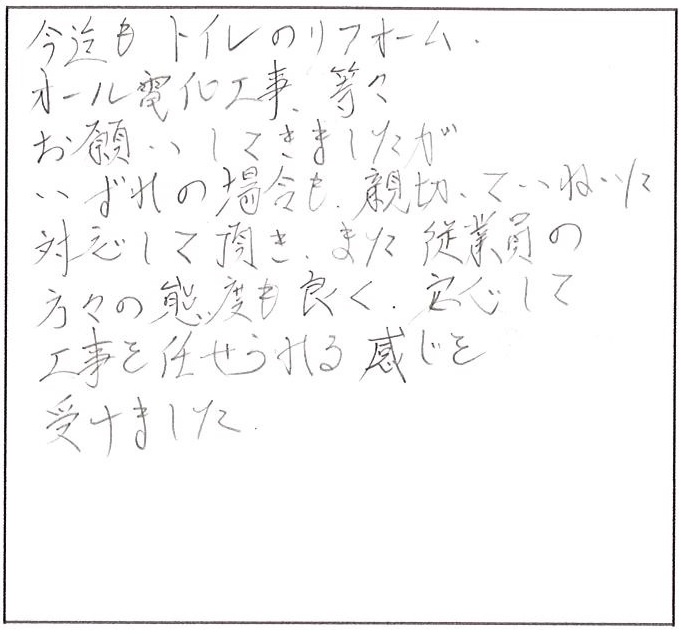 今迄も トイレのリフォーム.
オール電化工事、等々
お願いしてきましたが
いずれの場合も、親切、ていねいに
対応して頂き、また従業員の
方々の態度も良く、安心して
工事を任せられる感じを
受けました.